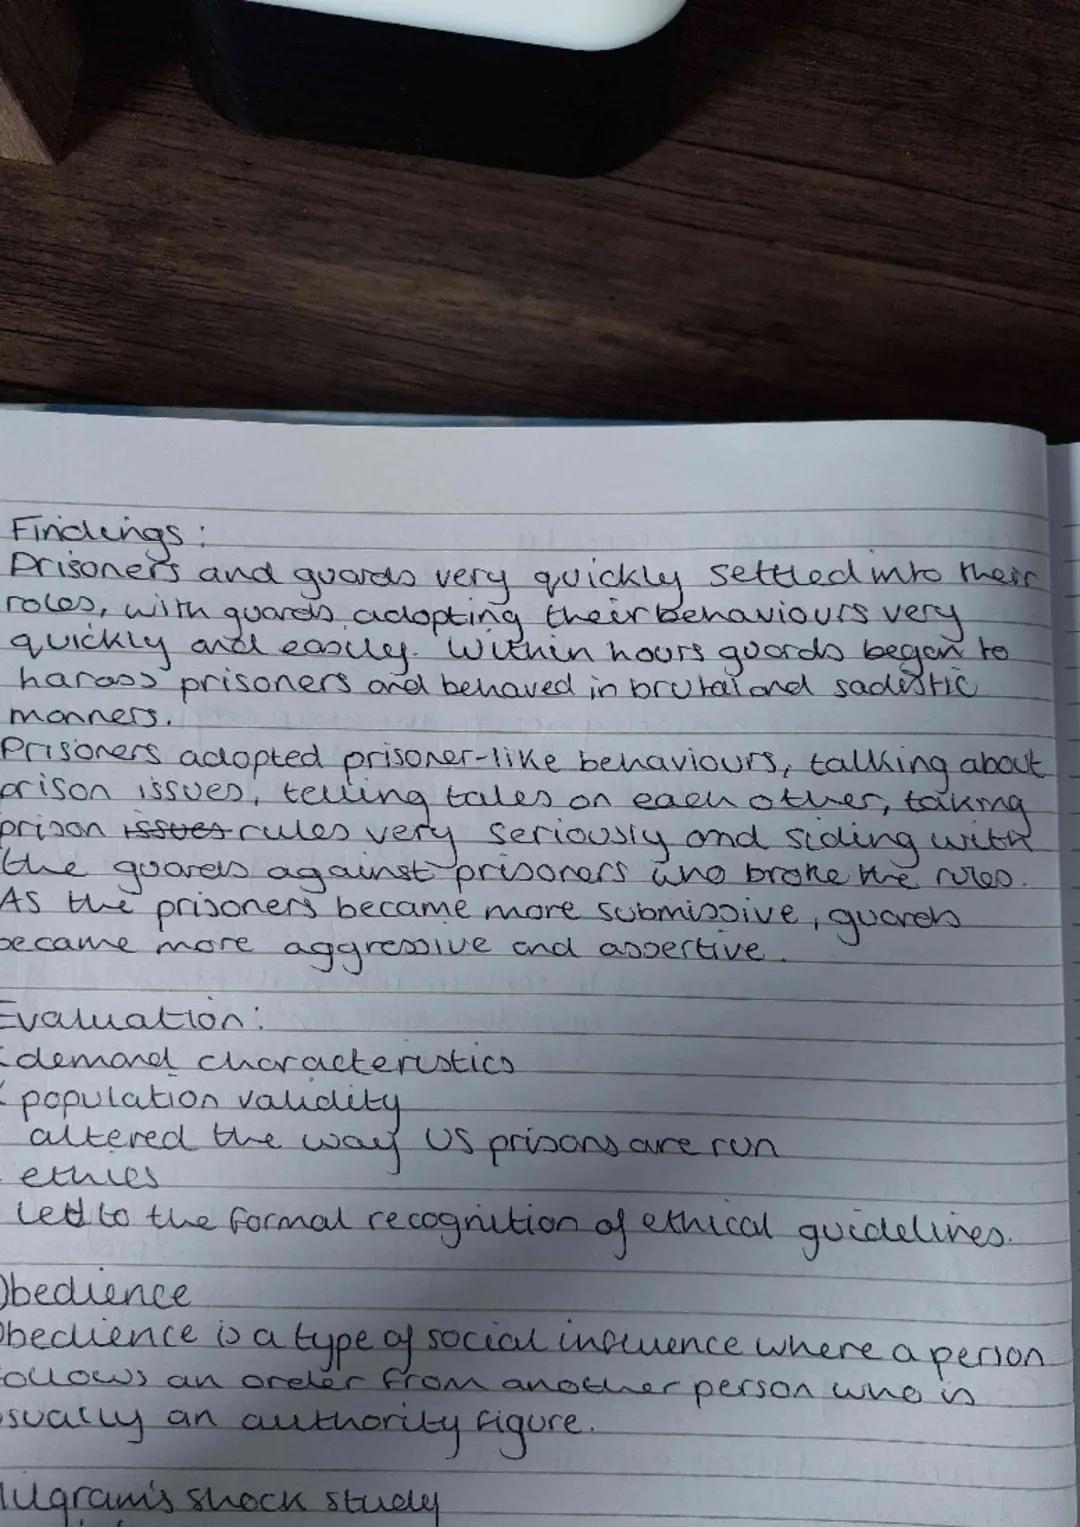 Findings:
Prisoners and guards very quickly settled into their
roles, with guards adopting their behaviours very
quickly and easily. Within hours guards began to
harass prisoners and behaved in brutal and sadistic
manners.
Prisoners adopted prisoner-like behaviours, talking about
prison issues, telling tales on each other, taking
prison issues rules very seriously and siding with
the guards against prisoners who broke the rules.
As the prisoners became more submissive, guards
became more aggressive and assertive.
Evaluation:
demand characteristics
population validity
altered the way US prisons are run
ethics
led to the formal recognition of ethical guidelines.
Obedience
Obedience is a type of social influence where a person
follows an order from another person who is
usually an authority figure.
Milgram's shock study